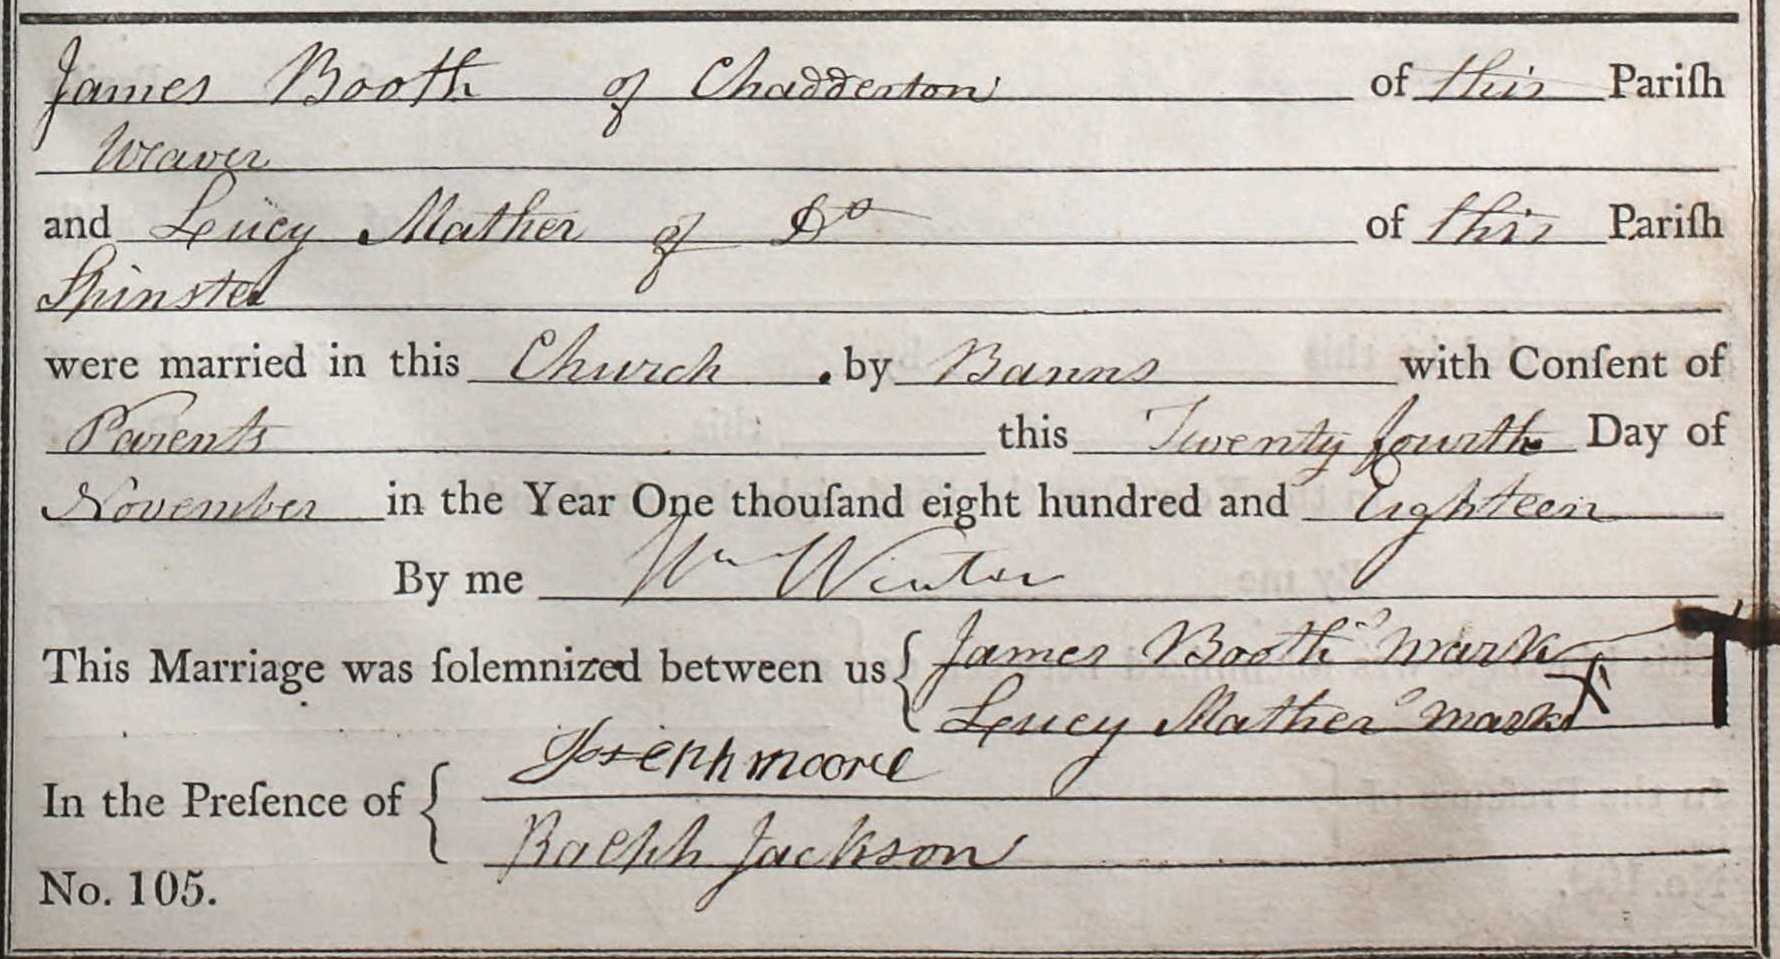 James Booth of Chadderton of this Pariſh
Weaver
and Leucy Mather of Do of this Pariſh
Spinster
were married in this Church by Banns with Conſent of
Parents this Twenty fourth Day of
November in the Year One thouſand eight hundred and Eighteen
By me Wm Winter
This Marriage was ſolemnized between us { James Booth's mark
Leucy Mather's mark X
In the Preſence of { Joseph moore
Ralph Jackson
No. 105.